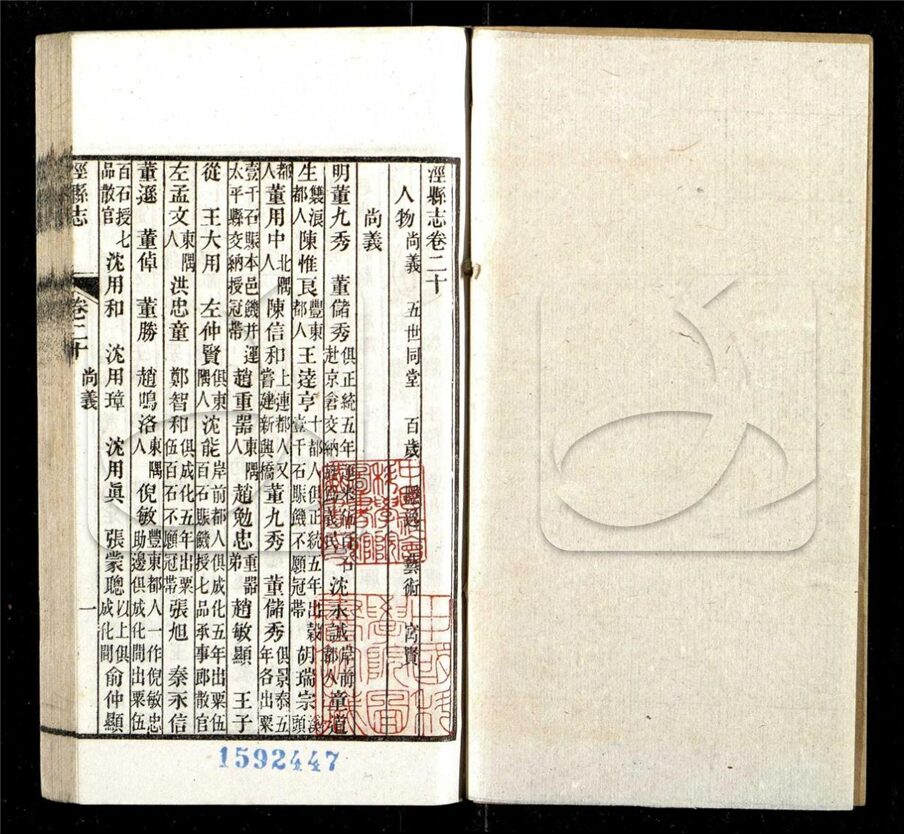 涇縣志卷二十
人物 尚義 五世同堂 百歲 藝術 寓賢
尚義
明董九秀 董儲秀 俱正統五年 赴京倉交納 沈永誠 岸前都人 童道
生 雙浪都人 陳惟良 豐東都人 王逵亨 十都人俱正統五年出穀壹千石賑饑不願冠帶 胡瑞宗 溪頭
都人 董用中 北隅人 陳信和 上連都人又嘗建新興橋 董九秀 董儲秀 俱景泰五年各出粟
壹千石賑本邑饑并運太平縣交納授冠帶 趙重器 東隅人 趙勉忠 重器弟 趙敏顯 王子
從 王大用 左仲賢 俱東隅人 沈能 岸前都人俱成化五年出粟伍百石賑饑授七品承事郎散官
左孟文 東隅人 洪忠童 鄭智和 俱成化五年出粟伍百石不願冠帶 張旭 秦永信
董遜 董倬 董勝 趙鳴洛 東隅人 倪敏 豐東都人一作倪敏忠助邊俱成化間出粟伍
百石授七品散官 沈用和 沈用璋 沈用眞 張蒙聰 以上俱成化間 俞仲顯
涇縣志 卷二十 尚義 一
1592447